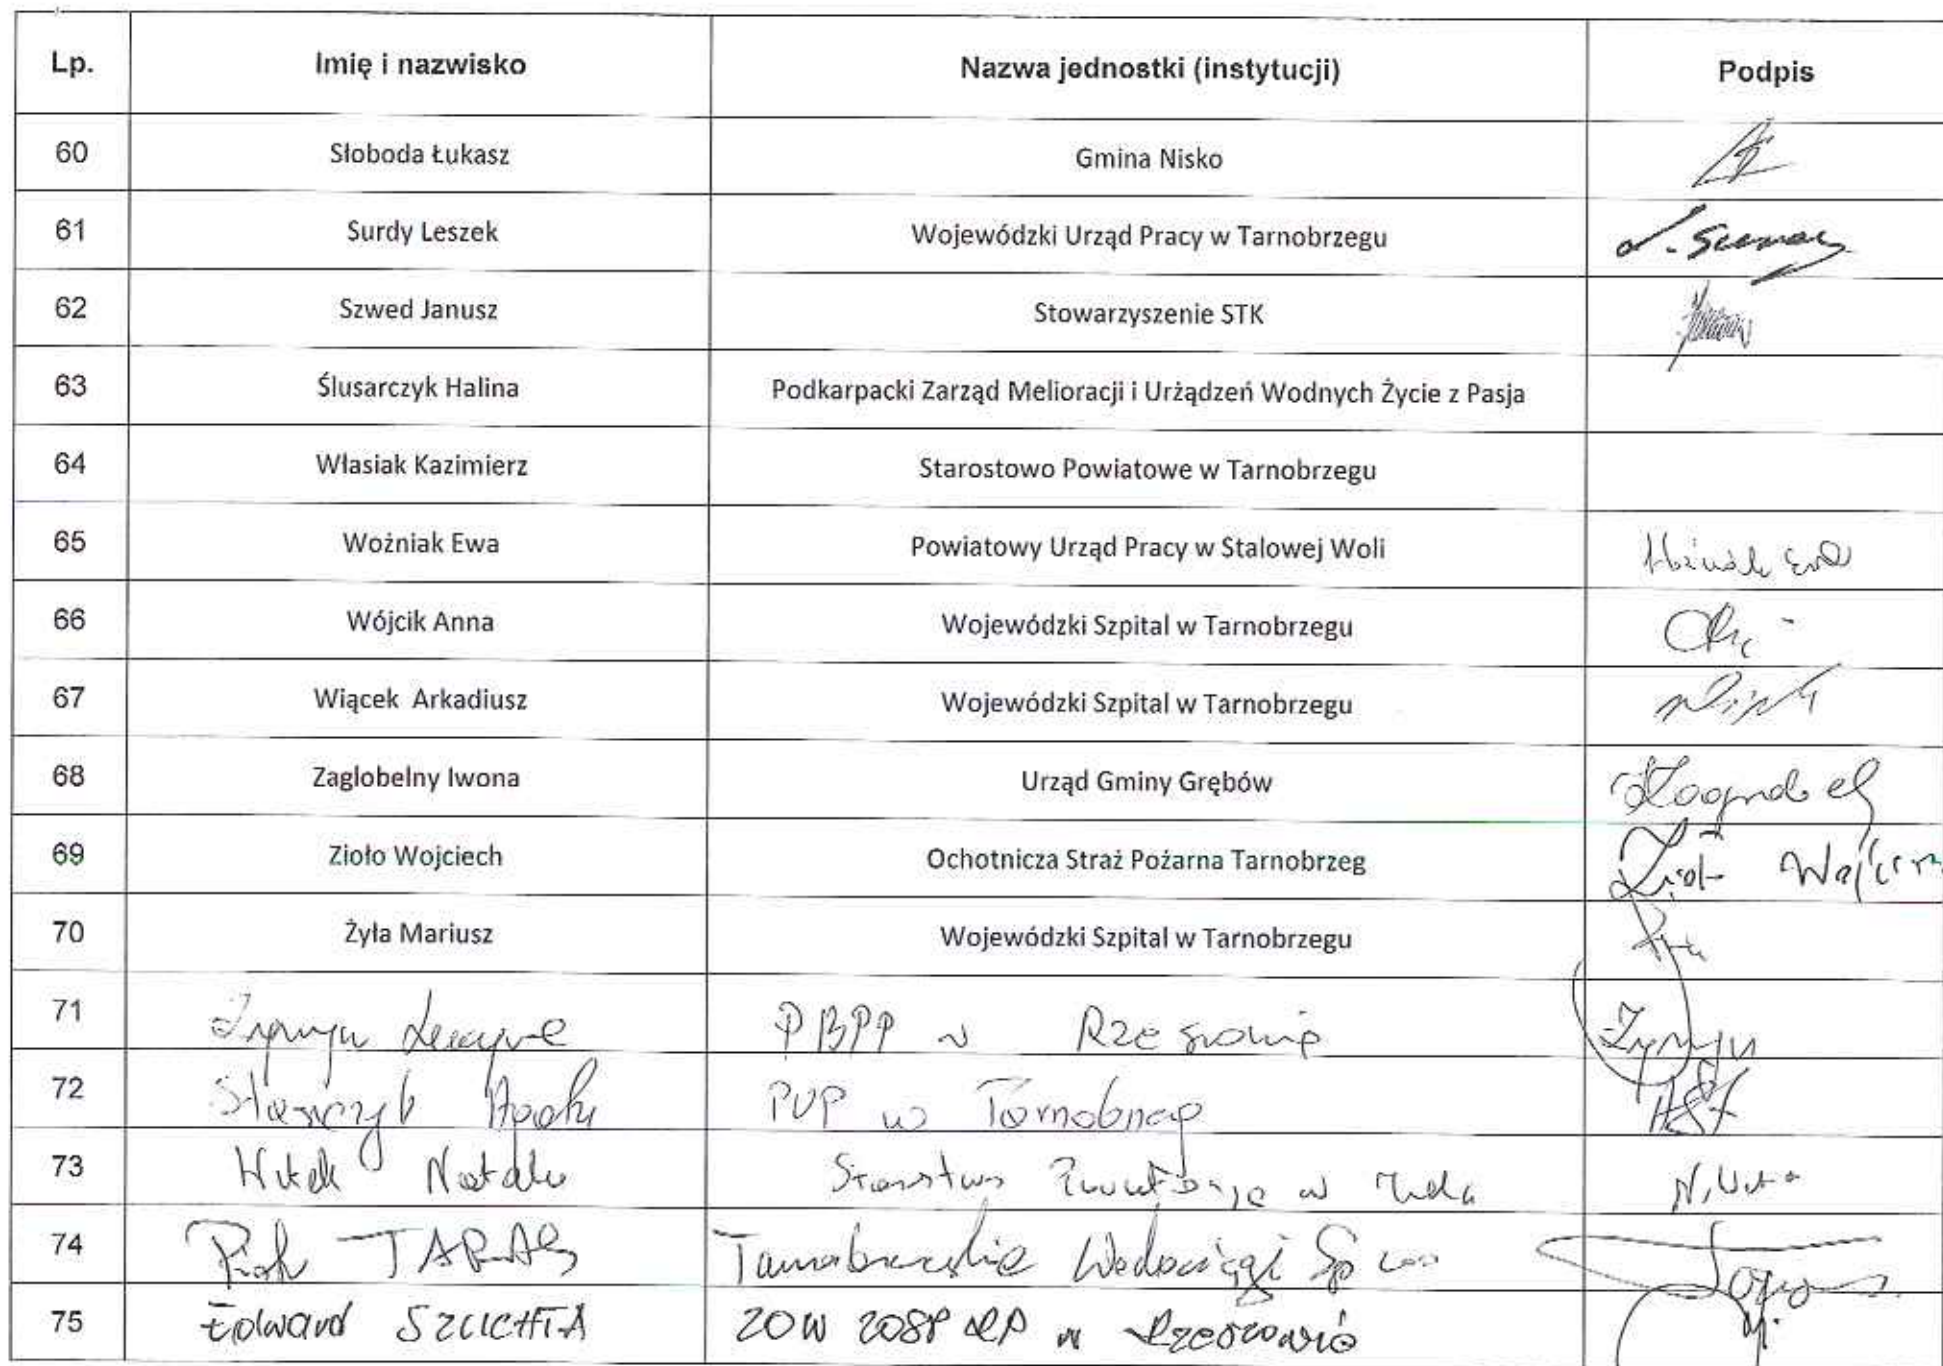 Lp. Imię i nazwisko Nazwa jednostki (instytucji) Podpis
60 Słoboda Łukasz Gmina Nisko
61 Surdy Leszek Wojewódzki Urząd Pracy w Tarnobrzegu
62 Szwed Janusz Stowarzyszenie STK
63 Ślusarczyk Halina Podkarpacki Zarząd Melioracji i Urżądzeń Wodnych Życie z Pasja
64 Własiak Kazimierz Starostowo Powiatowe w Tarnobrzegu
65 Woźniak Ewa Powiatowy Urząd Pracy w Stalowej Woli
66 Wójcik Anna Wojewódzki Szpital w Tarnobrzegu
67 Wiącek Arkadiusz Wojewódzki Szpital w Tarnobrzegu
68 Zaglobelny Iwona Urząd Gminy Grębów
69 Zioło Wojciech Ochotnicza Straż Pożarna Tarnobrzeg
70 Żyła Mariusz Wojewódzki Szpital w Tarnobrzegu
71 PBPP w Rzeszowie
72 PUP w Tarnobrzeg
73 Witek Natalia
74 Piotr TARAS Tarnobrzeskie Wodociągi Sp
75 Edward SZUCHTA ZOW ZOSP RP w Rzeszowie